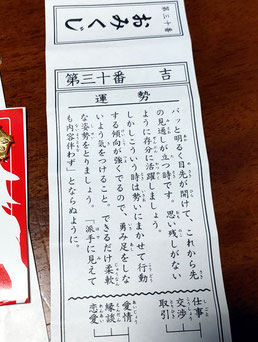 第三十番
おみくじ
第三十番　吉
運勢
パッと明るく目先が開けて、これから先
の見通しが立つ時です。思い残しがない
ように存分に活躍しましょう。
しかしこういう時は勢いにまかせて行動
する傾向が強くでるので、勇み足をしな
いよう気をつけること。できるだけ柔軟
な姿勢をとりましょう。「派手に見えて
も内容伴わず」とならぬように。
仕事
交渉
取引
愛情
縁談
恋愛